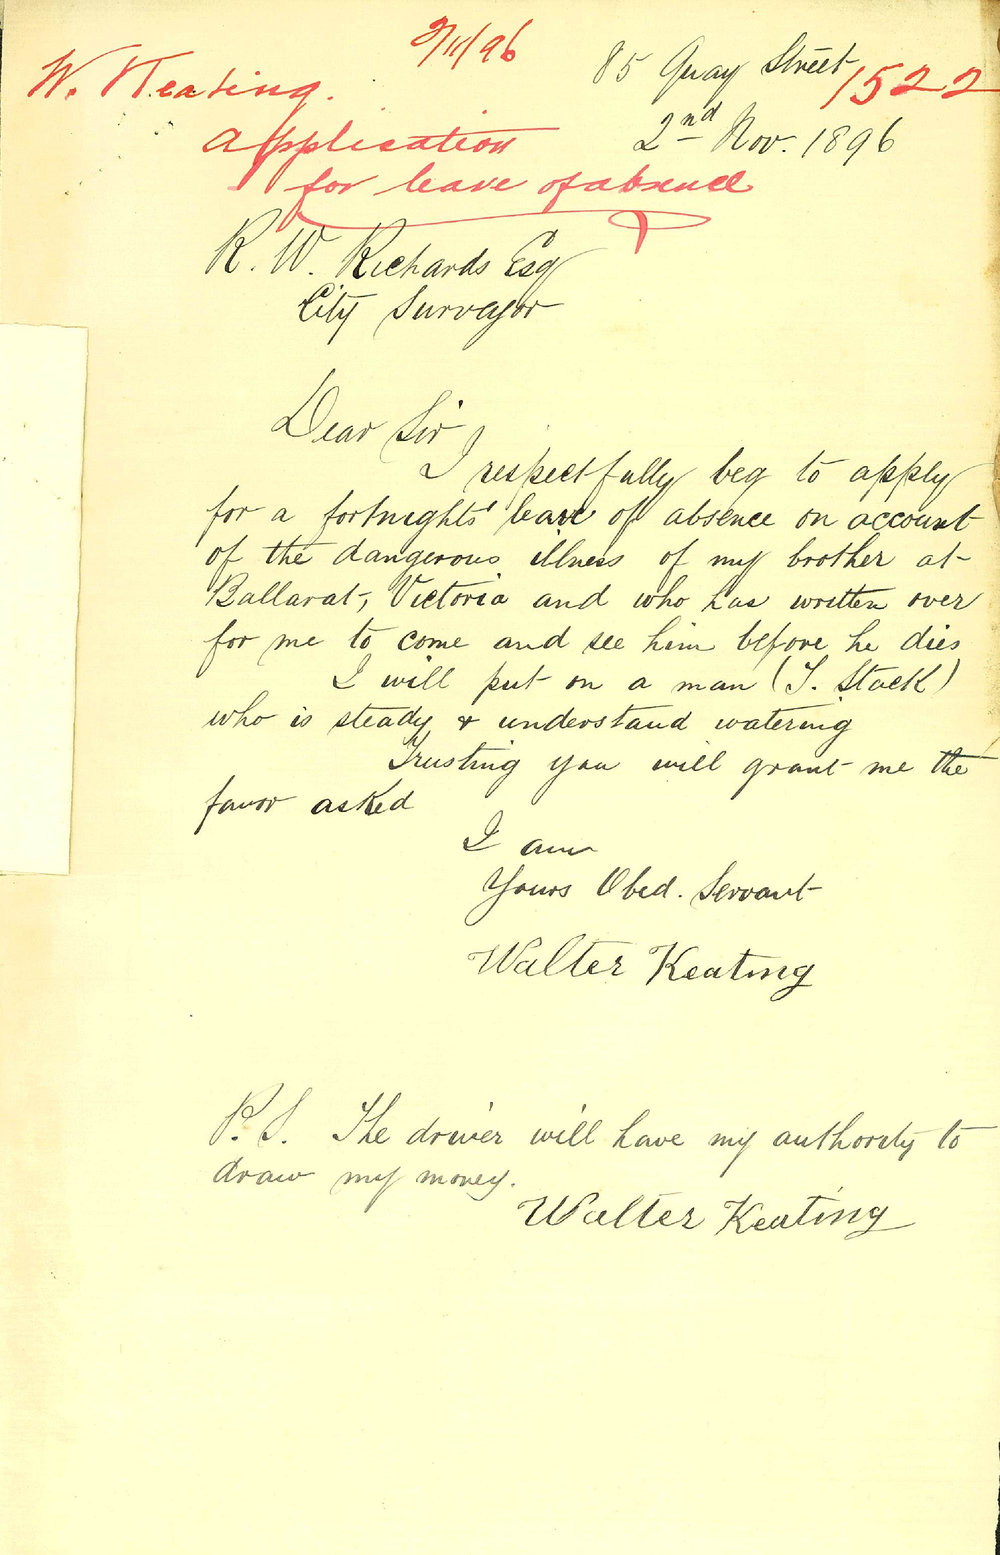 2/11/96
W. Keating.
85 Quay Street
1522
Application
2nd Nov. 1896
for leave of absence
R. W. Richards Esq
City Surveyor
Dear Sir
I respectfully beg to apply
for a fortnights' leave of absence on account
of the dangerous illness of my brother at
Ballarat, Victoria and who has written over
for me to come and see him before he dies
I will put on a man (T. Stack)
who is steady & understand watering
Trusting you will grant me the
favor asked
I am
Yours Obed. Servant
Walter Keating
P.S. The driver will have my authority to
draw my money.
Walter Keating